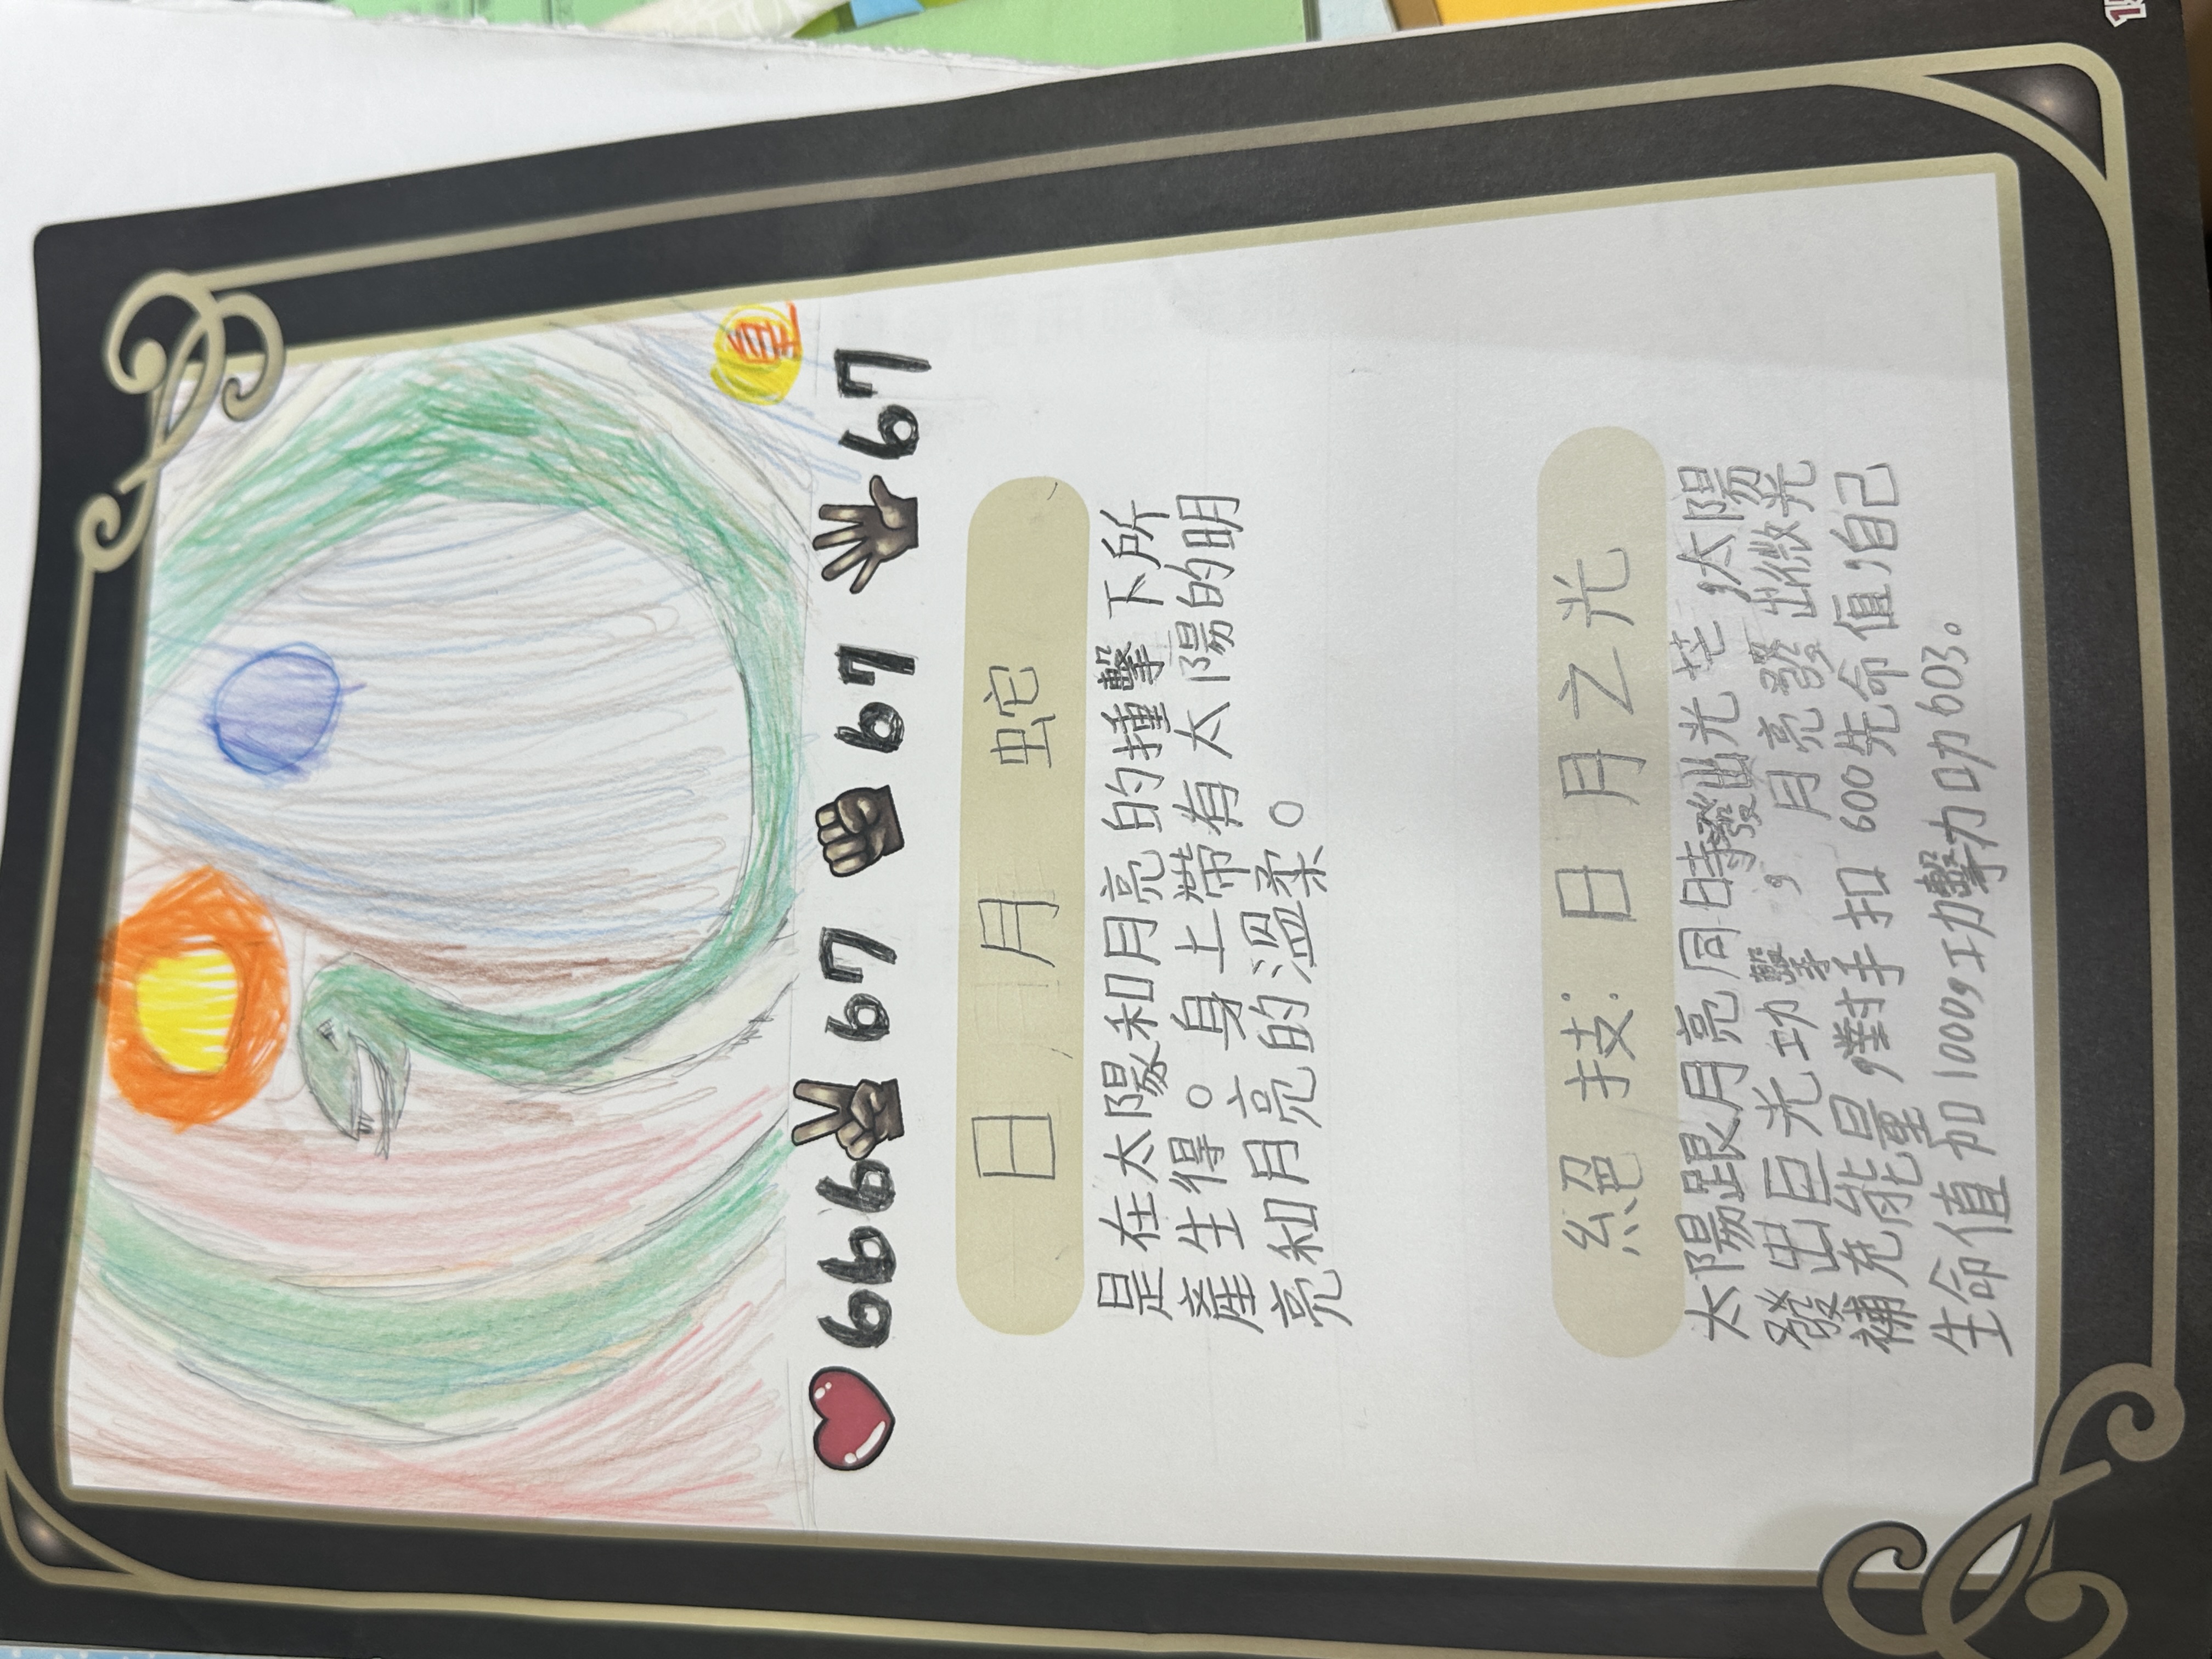 皇
666 67 67 67
日月 蛇
是在太陽和月亮的撞擊下所
產生得。身上帶有太陽的明
亮和月亮的溫柔。
絕技：日月之光
太陽跟月亮同時發出光芒,太陽
發出巨光功擊,月亮發出微光
補充能量,對手扣600先命值,自己
生命值加1000,功擊力加603。